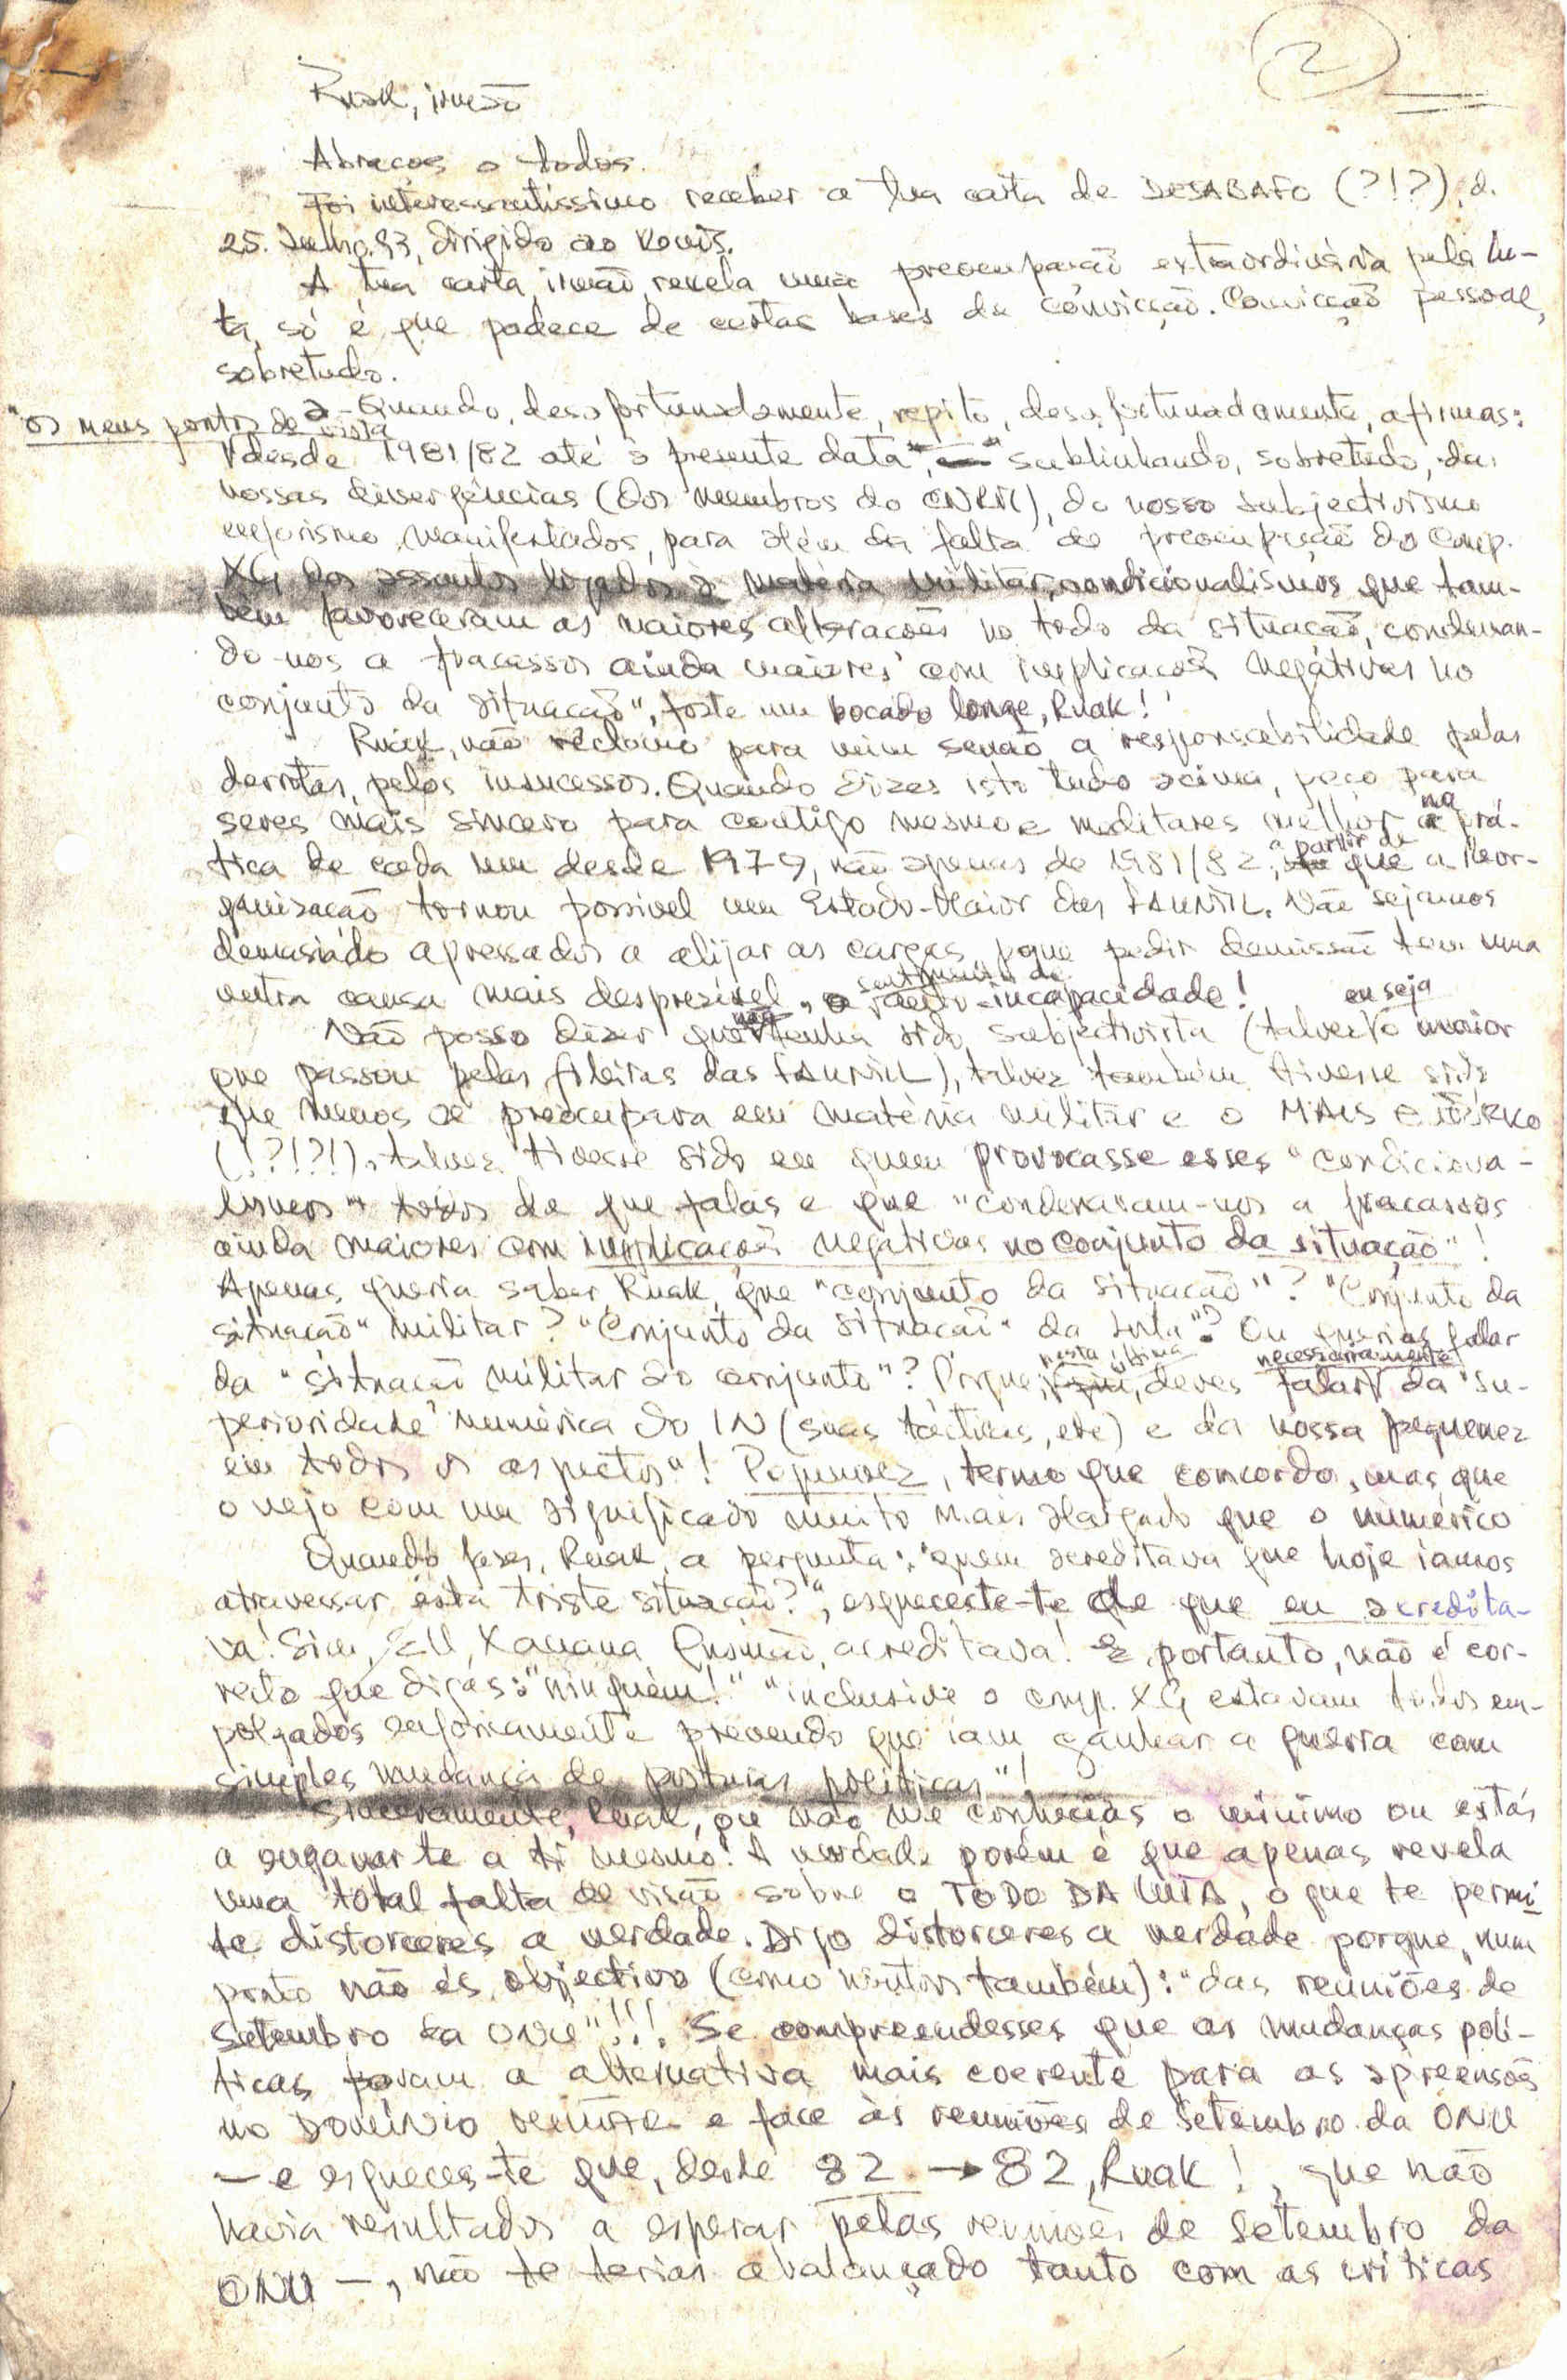 2
Ruak, irmão
Abraços a todos.
Foi interessantíssimo receber a tua carta de DESABAFO (?!?), d.
25. Julho. 83, dirigida ao Konis.
A tua carta, irmão, revela uma preocupação extraordinária pela lu-
ta, só é que padece de certas bases de convicção. Convicção pessoal,
sobretudo.
a - Quando, desafortunadamente, repito, desafortunadamente, afirmas:
"os meus pontos de vista
desde 1981/82 até à presente data", sublinhando, sobretudo, das
nossas divergências (dos membros do CNRM), do nosso subjectivismo
euforismo manifestados, para além da falta de preocupação do Comp.
XG dos assuntos ligados à matéria militar, condicionalismos que tam-
bém favoreceram as maiores alterações no todo da situação, condenan-
do-nos a fracassos ainda maiores com implicações negativas no
conjunto da situação", foste um bocado longe, Ruak!
Ruak, não reclamo para mim senão a responsabilidade pelas
derrotas, pelos insucessos. Quando dizes isto tudo acima, peço para
seres mais sincero para contigo mesmo e meditares melhor na prá-
tica de cada um desde 1979, não apenas de 1981/82, a partir de que a Reor-
ganização tornou possível um Estado-Maior das FALINTIL. Não sejamos
demasiado apressados a alijar as cargas, que pedir demissão tem uma
outra causa mais desprezível, o sentimento de incapacidade!
Não posso dizer que não tenha sido subjectivista (talvez eu seja o maior
que passou pelas fileiras das FALINTIL), talvez também tivesse sido
que menos se preocupara em matéria militar e o MAIS
(!?!?!), talvez tivesse sido eu quem provocasse esses "condiciona-
lismos" todos de que falas e que "condenaram-nos a fracassos
ainda maiores com implicações negativas no conjunto da situação"!
Apenas queria saber, Ruak, que "conjunto da situação"? "Conjunto da
situação" militar? "Conjunto da situação" da luta"? Ou querias falar
da "situação militar do conjunto"? Porque, nesta última, deves necessariamente falar da "su-
perioridade numérica do IN (suas tácticas, etc) e da nossa pequenez
em todos os aspectos"! Pequenez, termo que concordo, mas que
o vejo com um significado muito mais alargado que o numérico
Quando fazes, Ruak, a pergunta: "quem acreditava que hoje íamos
atravessar esta triste situação?", esqueceste-te de que eu acredita-
va! Sim, EU, Xanana Gusmão, acreditava! E, portanto, não é cor-
recto que digas: "ninguém!" "inclusive o cmp. XG estavam todos em-
polgados euforicamente prevendo que iam ganhar a guerra com
simples mudança de posturas políticas"!
Sinceramente, Ruak, ou não me conhecias o mínimo ou estás
a enganar-te a ti mesmo! A verdade porém é que apenas revela
uma total falta de visão sobre o TODO DA LUTA, o que te permi-
te distorceres a verdade. Digo distorceres a verdade porque, num
ponto não és objectivo (como noutros também): "das reuniões de
Setembro da ONU"!!! Se compreendesses que as mudanças polí-
ticas foram a alternativa mais coerente para as apreensões
no DOMÍNIO MILITAR e face às reuniões de Setembro da ONU
— e esqueces-te que, desde 82 → 82, Ruak!, que não
havia resultados a esperar pelas reuniões de Setembro da
ONU —, não te terias abalançado tanto com as críticas